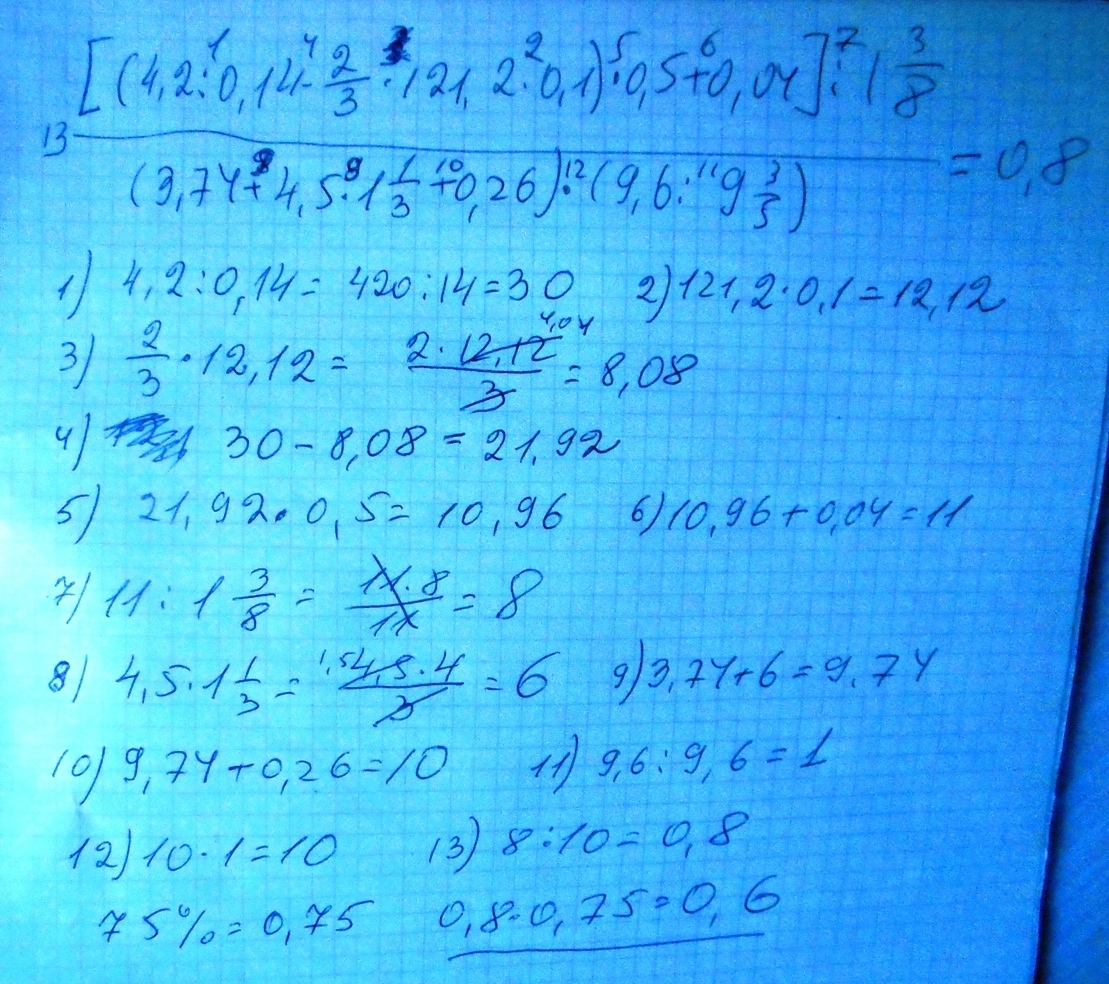 [(4,2:0,14-2/3·121,2·0,1)·0,5+0,04]:1 3/8
13
(3,74+4,5·1 1/3+0,26):(9,6:9 3/5) = 0,8
1) 4,2:0,14= 420:14=30 2) 121,2·0,1=12,12
3) 2/3·12,12= 2·12,12/3 4,04 = 8,08
4) 30-8,08=21,92
5) 21,92·0,5= 10,96 6) 10,96+0,04=11
7) 11:1 3/8= 11·8/11 = 8
8) 4,5·1 1/3= 1,5 4,5·4/3 = 6 9) 3,74+6=9,74
10) 9,74+0,26=10 11) 9,6:9,6=1
12) 10·1=10 13) 8:10=0,8
75%=0,75 0,8·0,75=0,6